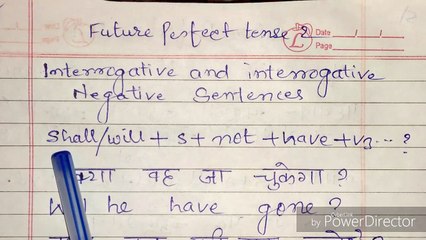 Future Perfect tense 2
Date
Page
Interrogative and interrogative
Negative Sentences
Shall/will + S + not + have + v3 ... ?
वह जा चुकेगा ?
he have gone ?
by PowerDirector